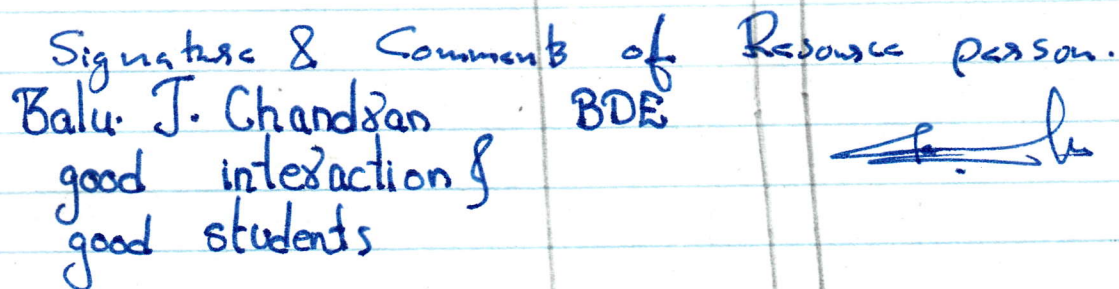 Signature & Comments of Resource person.
Balu. J. Chandran BDE
good interaction &
good students